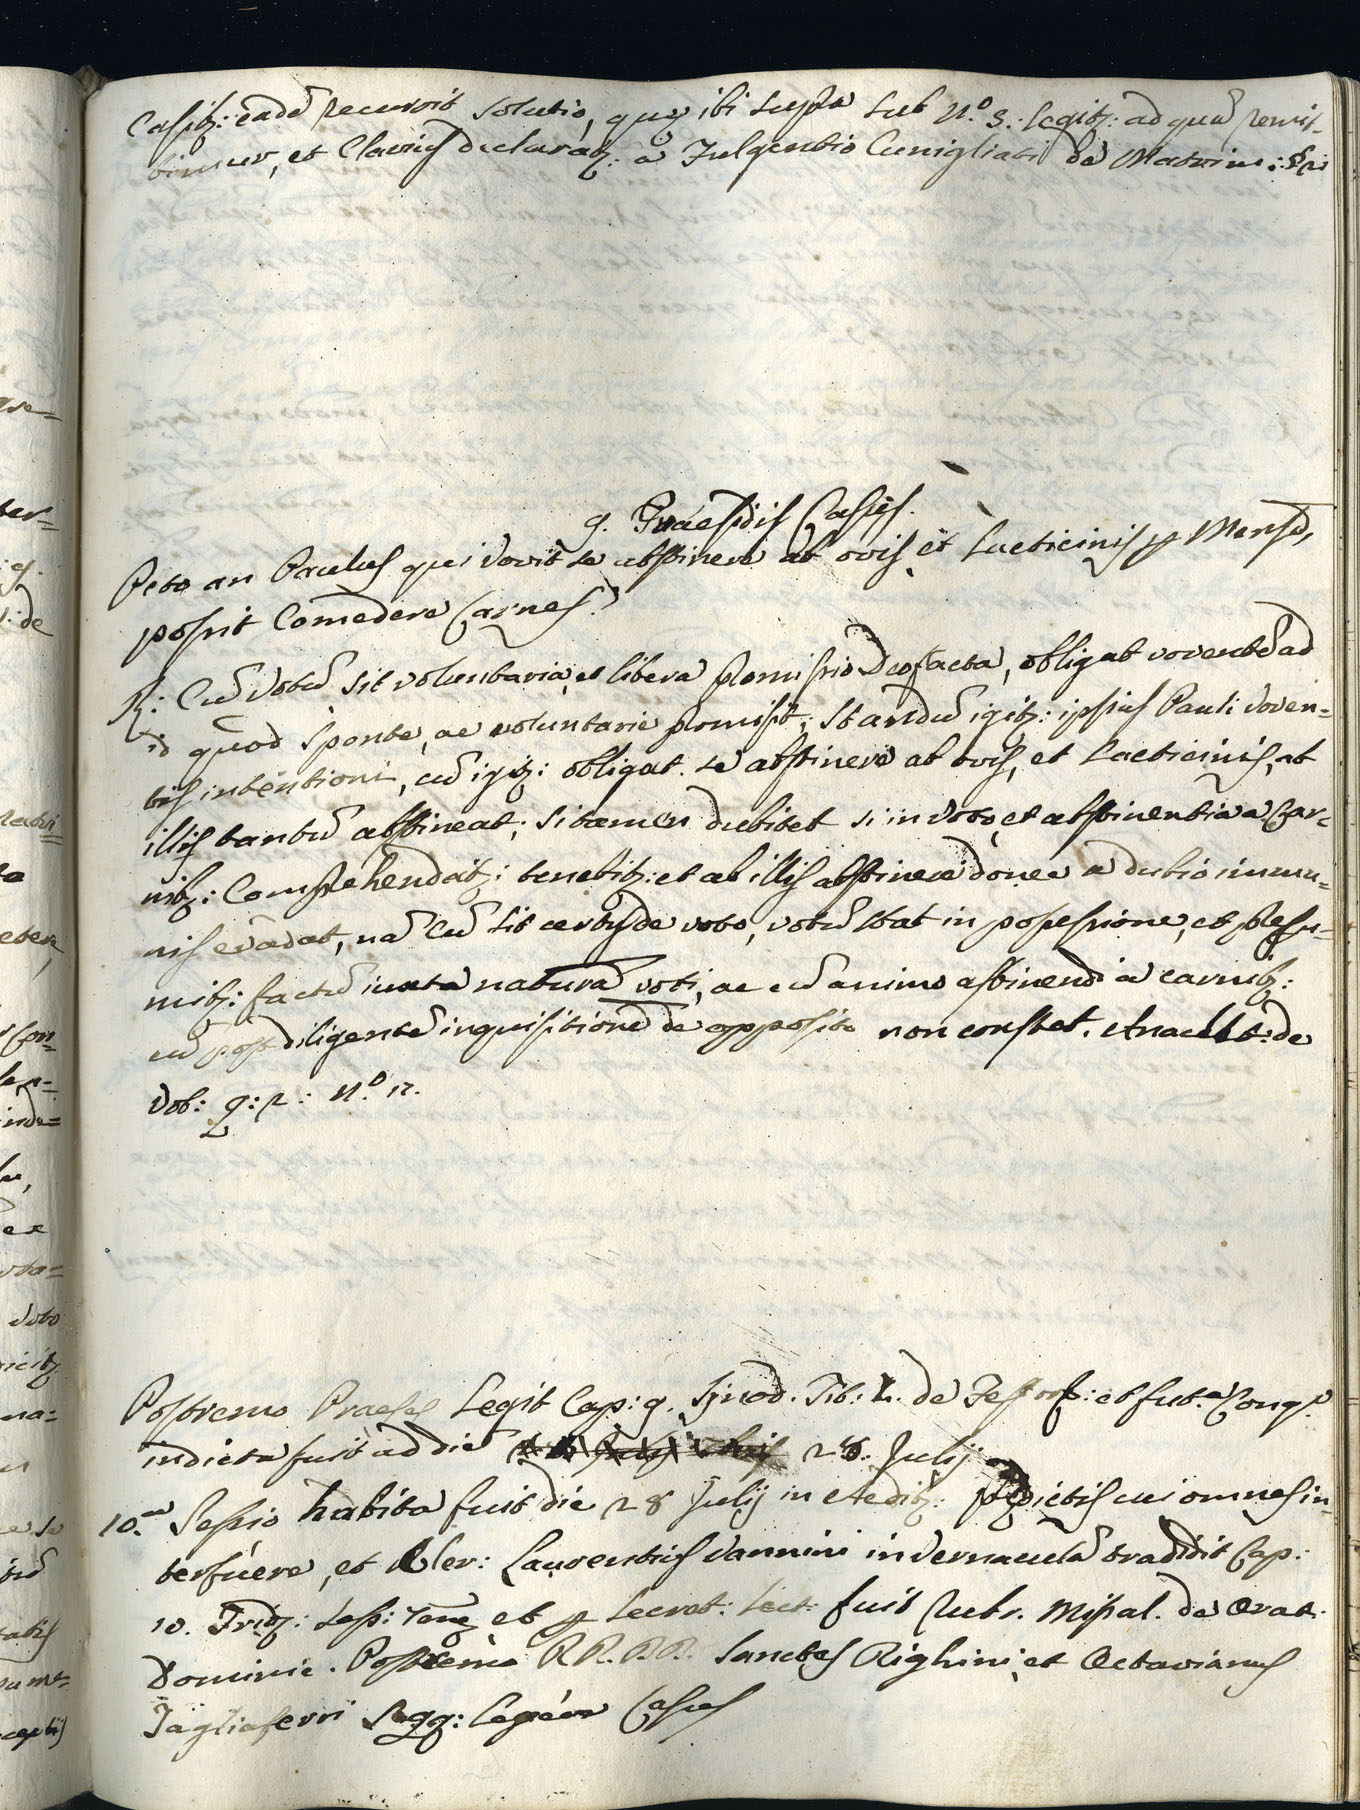 Casibq: eadē recurrit solutio, quę ibi supra sub N.º 3: legitq: ad quā remit-
timur, et Clarius declaratq: a Fulgentio Cunigliati de Matrim:
9. Praesidis Casus.
Peto an Paulus qui vovit se abstinere ab ovis et lacticiniis p Mensē,
possit Comedere Carnes?
R: Cū votū sit voluntaria, et libera promissio Deo facta, obligat voventē ad
id quod sponte, ac voluntarie promisit; standū igitq: ipsius Pauli voven=
tis intentioni, cū igitq: obligat se abstinere ab ovis, et lacticiniis, ab
illis tantū abstineat; si tamen dubitet si in voto, et abstinentia a Car=
nibq: Comprehendatq: tenebitq: et ab illis abstinere donec a dubio immu=
nis evadat, nā Cū sit certus de voto, votū stat in possessione, et presu=
mitq: factū iuxta naturā voti, ac cū animo abstinendi a carnibq:
cū post diligentē inquisitionē de opposito non constet. Anaclet: de
Vot: q: 2: N.º 12.
Postremo Praeses Legit Cap: 9. Synod. Tit: 1. de Test: et fut.ª Cong.e
indicta fuit ad diē 28: Julij
10.ma Sessio habita fuit die 28 Julij in Aedibq: pdictis cui omnes in-
terfuere, et Cler: Laurentius Vannini in vernaculā tradidit Cap:
10. Tridq: Sess: et p Secret: Lect: fuit Rubr. Missal. de Orat.
Dominic. Postremo RR.DD. Sanctes Righini, et Octavianus
Tagliaferri Seqq: legére Casus